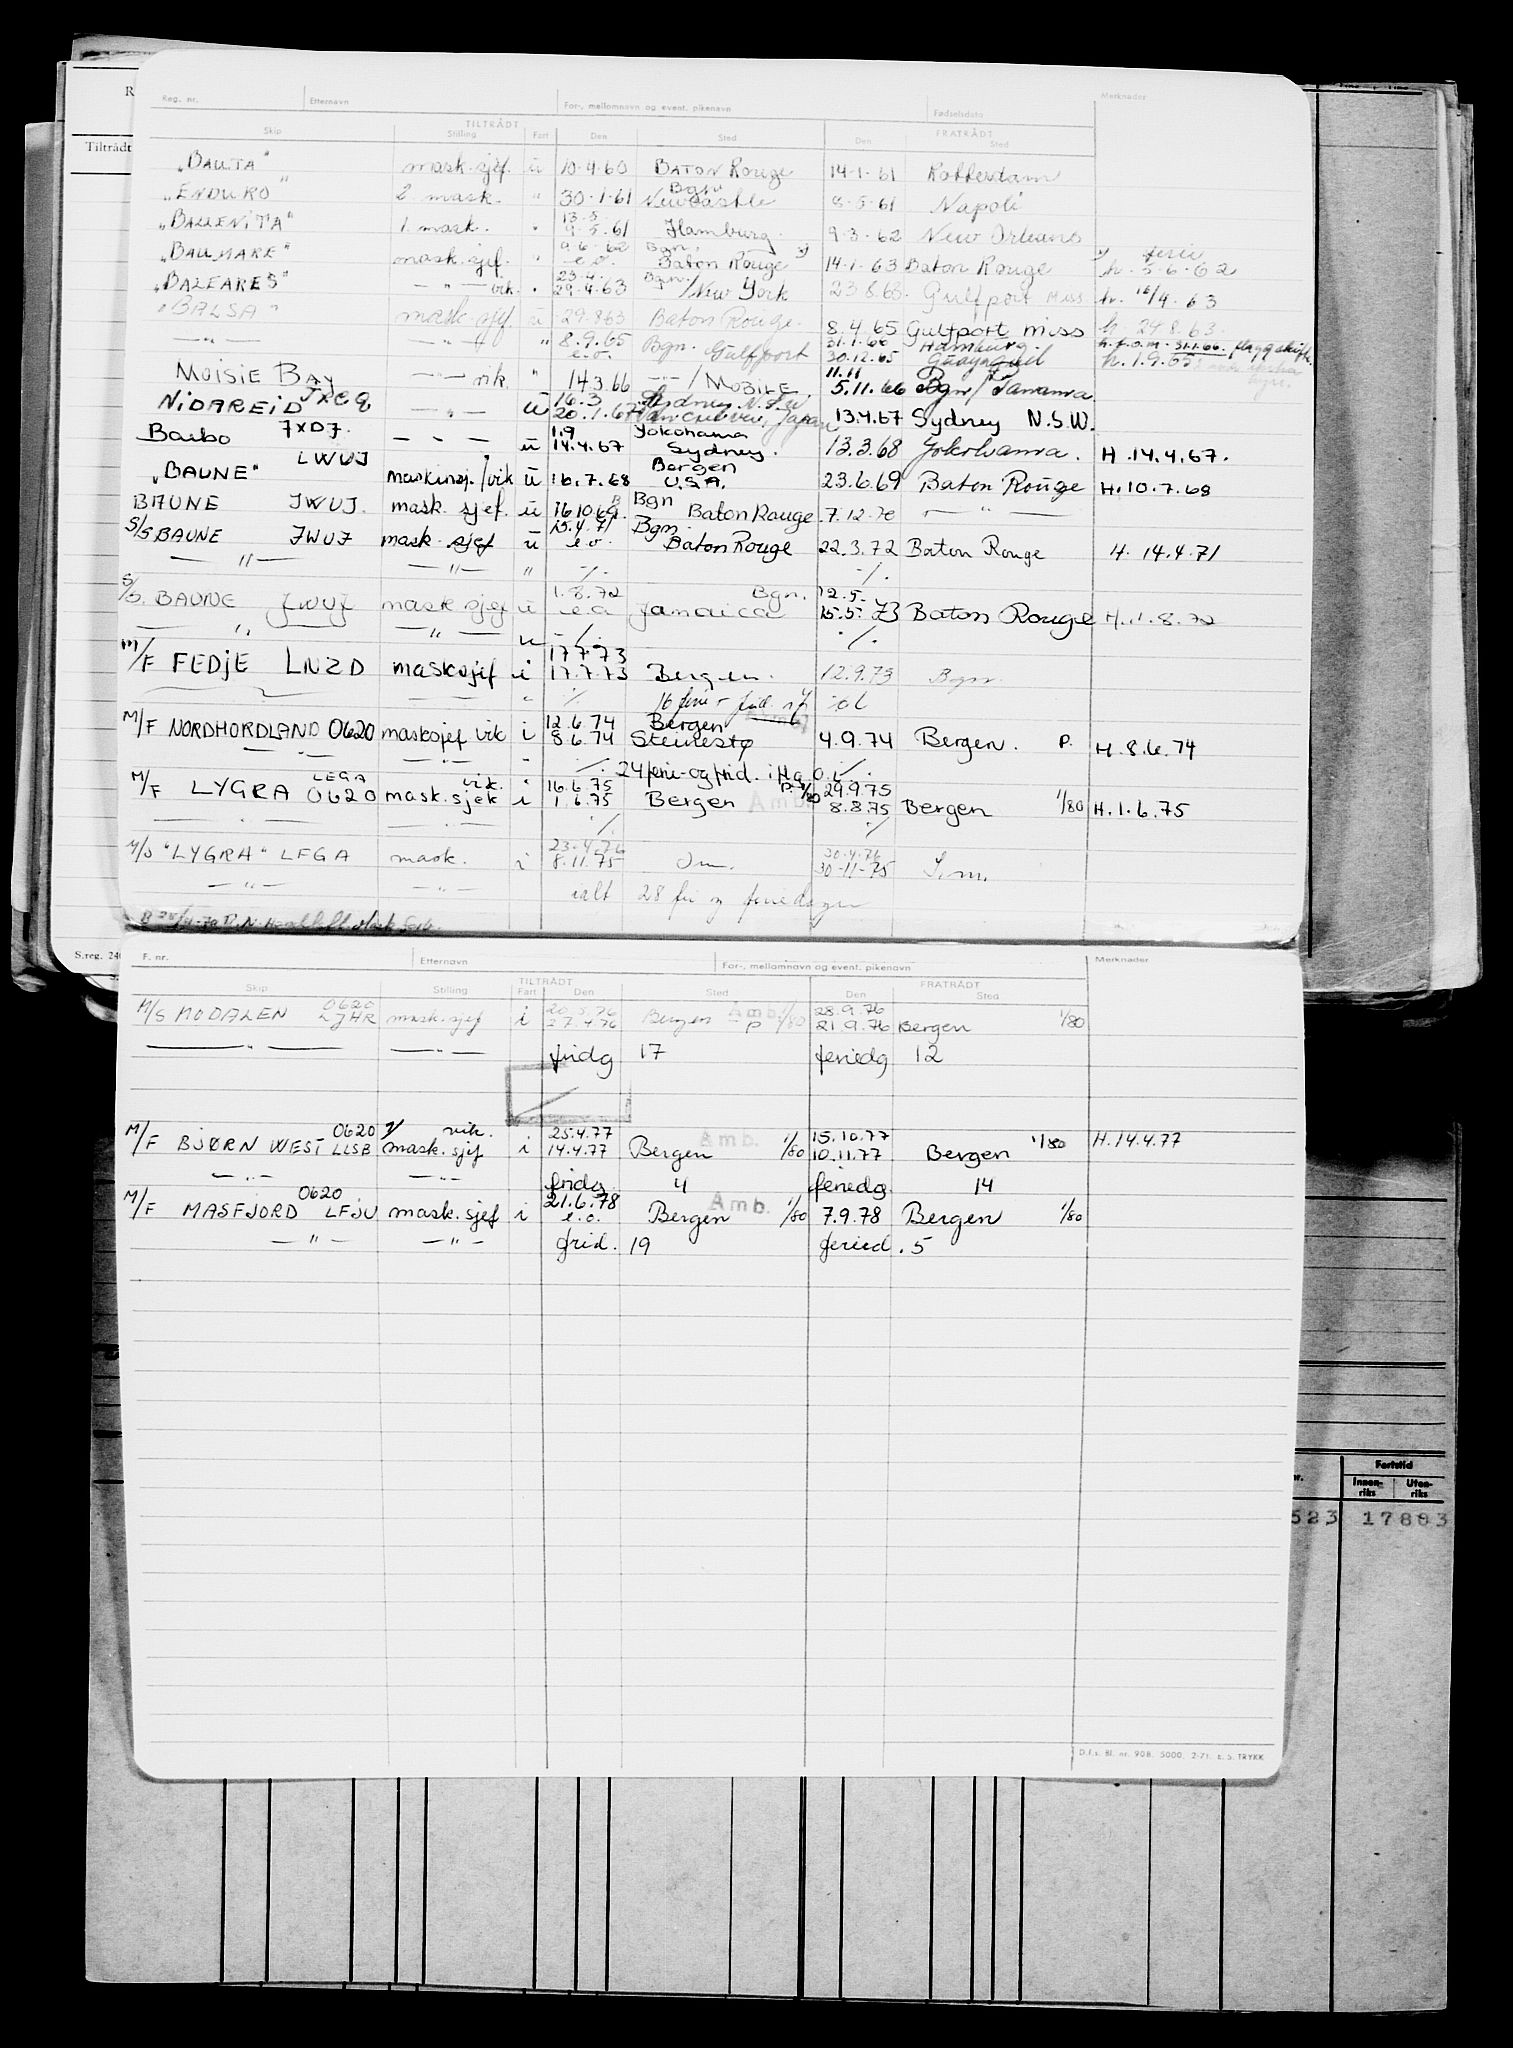 Reg. nr. Etternavn For-, mellomnavn og event. pikenavn Fødselsdato Merknader
TILTRÅDT FRATRÅDT
Skip Stilling Fart Den Sted Den Sted
Tiltrådt
"BAUTA" mask. sjef. u 10.4.60 BATON Rouge 14.1.61 Rotterdam
"ENDURO" 2. mask. " 30.1.61 Bgn Newcastle 8.5.61 Napoli
"BALLENITA" 1. mask. " 13.5 9.5.61 Hamburg 9.3.62 New Orleans
"BAUMARE" mask. sjef. " 9.6.62 e.o. Bgn. Baton Rouge x) 14.1.63 Baton Rouge x) ferie h. 5.6.62
"BALEARES" - " - vik. " 23.4. 29.4.63 Bgn. / New York 23.8.63. Gulfport Miss h. 16/4.63
"BALSA" mask sjef u 29.8.63 Baton Rouge. 8.4.65 Gulfport miss h. 29.8.63.
- " - - " - " 8.9.65 e.o. Bgn. Gulfport 31.1.66 30.12.65 Hamburg. Guayaquil h.f.o.m. 31.1.66. flaggskifte h. 1.9.65
MOISIE BAY - " - vik. " 14.3.66 - " - / MOBILE. 11.11 5.11.66 Bgn / Panama
NIDAREID JXEQ - " - u 16.3 20.1.67 Sydney N.S.W. Vancouver, Japan 13.4.67 Sydney N.S.W.
Barbo JXDJ - - - u 1.9 14.4.67 Yokohama Sydney. 13.3.68 Yokohama. H. 14.4.67.
"BAUNE" LWUJ maskinsj./vik u 16.7.68 Bergen U.S.A. 23.6.69 Baton Rouge H. 10.7.68
BAUNE JWUJ. mask. sjef. u 16.10.69 Bgn Baton Rouge 7.12.70 - " -
S/S BAUNE JWUJ mask. sjef u 15.4.71 e.o. Bgn. Baton Rouge 22.3.72 Baton Rouge H. 14.4.71
- " - - " - " -/. -/.
S/S. BAUNE JWUJ mask sjef u 1.8.72 e.o Jamaica Bgn. 12.5. 15.5.73 Baton Rouge H. 1.8.72
- " - - " - u -/. -/.
M/F FEDJE LNZD masksjef i 17.7.73 17.7.73 Bergen. 12.9.73 Bgn.
- - - " /. 16 ferie + frid.
M/F NORDHORDLAND 0620 masksjef vik i 12.6.74 8.6.74 Bergen Steinestø 4.9.74 Bergen. P. H. 8.6.74
- - - " - " /. 24 ferie- og frid. i Hq 0. /.
M/F LYGRA LEGA 0620 mask. sjef vik. i 16.6.75 1.6.75 Bergen P. 1/80 Amb. 29.9.75 8.8.75 Bergen 1/80 H. 1.6.75
- " - - " - /. /.
M/S "LYGRA" LFGA mask. i 23.4.76 8.11.75 Sm. 30.4.76 30-11-75 S.m.
- " - - " - ialt 28 fri og feriedager
S.reg.
F. nr. Etternavn For-, mellomnavn og event. pikenavn Merknader
TILTRÅDT FRATRÅDT
Skip Stilling Fart Den Sted Den Sted
M/S MODALEN 0620 LJHR mask. sjef i 20.5.76 27.4.76 Bergen Amb. P 1/80 28.9.76 21.9.76 Bergen 1/80
- " - - " - fridg 17 feriedg 12
M/F BJØRN WEST 0620 LLSB vik. mask. sjef i 25.4.77 14.4.77 Bergen Amb. 1/80 15.10.77 10.11.77 Bergen 1/80 H. 14.4.77
- " - - " - fridg. 4 feriedg. 14
M/F MASFJORD 0620 LFJU mask. sjef i 21.6.78 e.o. Bergen Amb. 1/80 7.9.78 Bergen 1/80
- " - - " - frid. 19 feried. 5
Fartstid
Innen-riks Uten-riks
523 17803
D.f.s. Bl. nr. 90B. 5000. 2-71. E. S. TRYKK